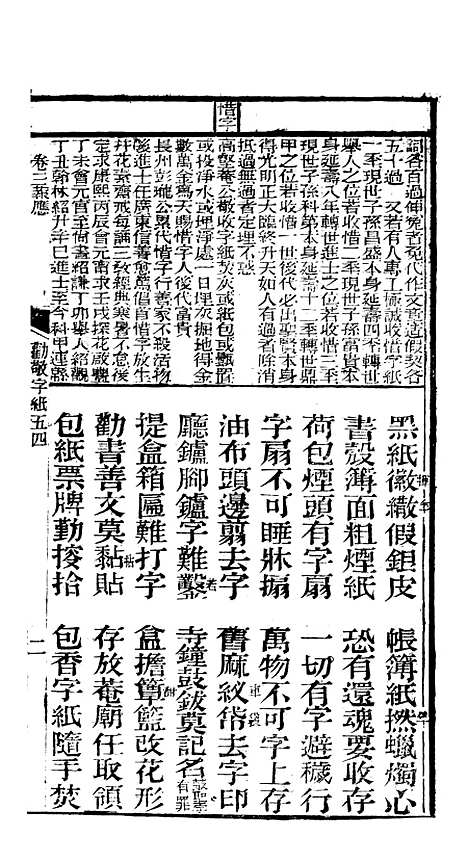 惜字
詞咨百過伸冤者免代作文書造假契咎
五十過 又若有人專工極誠收惜字紙
一季現世子孫昌盛本身延壽四季轉世
舉人之位若收惜二季現世子孫富貴本
身延壽八年轉世進士之位若收惜三季
現世子孫科第本身延壽十二季轉世鼎
甲之位若收惜一世後代必出聖賢本身
得光明正大臨終升天如人有過者除消
抵過無過者定理不惑
高鏧菴公敬收字紙焚灰或紙包或甎置
或投淨水或埋淨處一日埋灰掘地得金
數萬金爲天賜惜字人後代富貴
長州彭瓏公累代惜字行善家不殺活物
後進士任廣東信善愈篤倡首惜字放生
幷花齋戒每誦三教經典寒暑不怠求
定求康熙丙辰會元甯求壬戌探花啟豐
丁未會元官至尙書紹謙丁卯舉人紹觀
丁丑翰林紹升辛巳進士至今科甲連綿
卷三報應
勸敬字紙五四
二
黑紙徽繖假銀皮 帳簿紙撚蠟燭心
書殼簿面粗煙紙 恐有還魂要收存
荷包煙頭有字扇 一切有字避穢行
字扇不可睡牀搧 萬物不可字上存
油布頭邊剪去字 舊麻紋帋去字印
廳鑪腳鑪字難鑿 寺鐘鼓鈸莫記名
提盒箱匾難打字 盒擔簞籃改花形
勸書善文莫黏貼 存放菴廟任取領
包紙票牌勤撿拾 包香字紙隨手焚